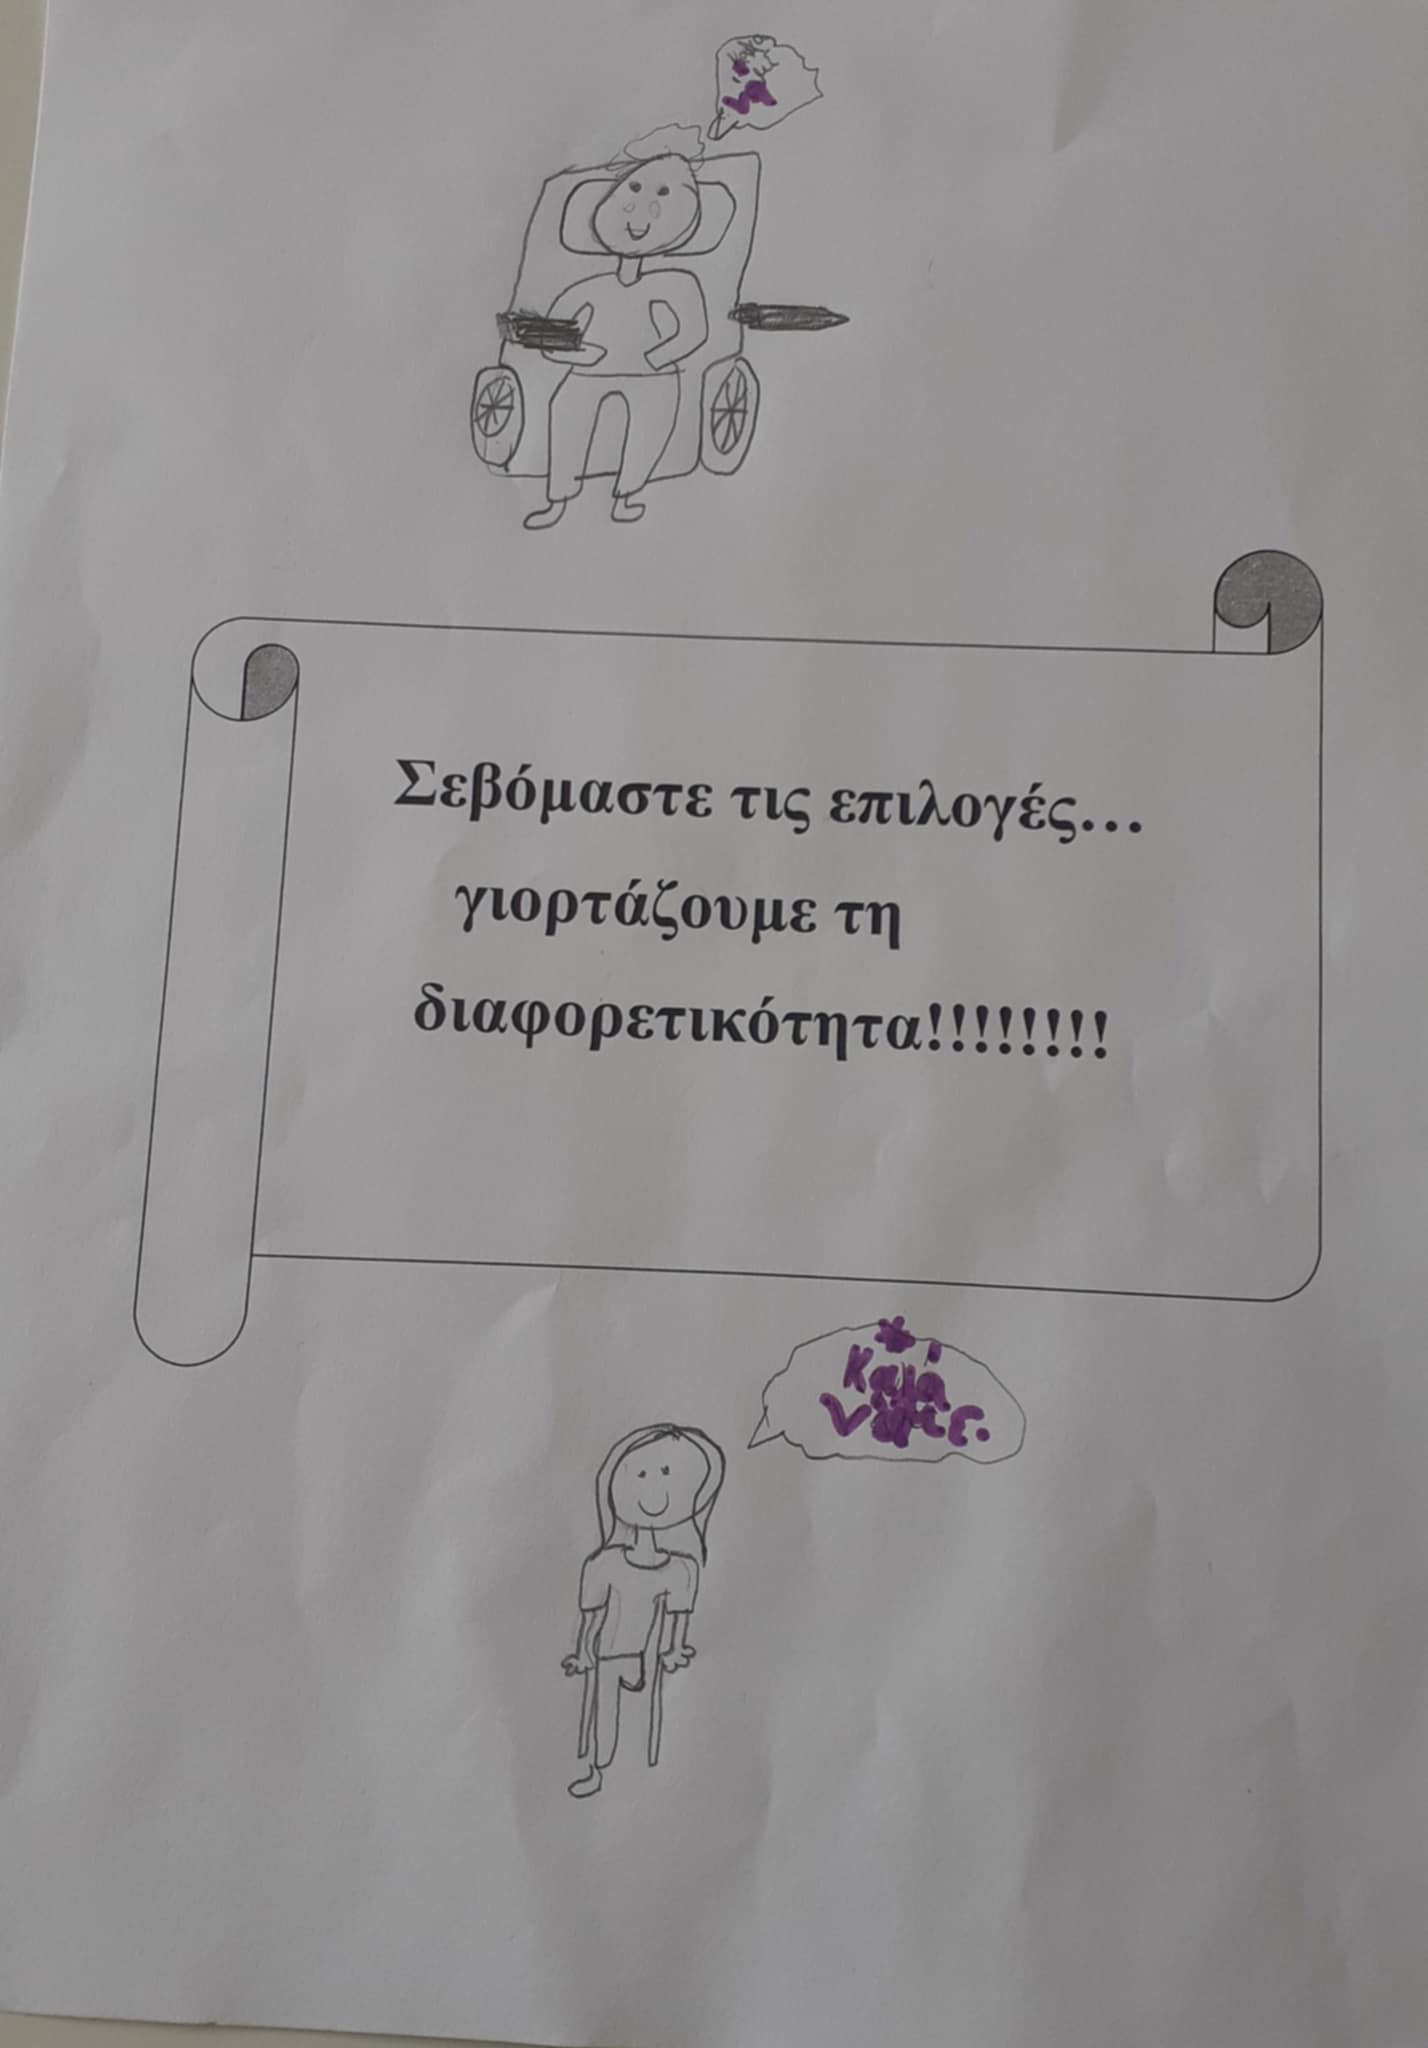 Σεβόμαστε τις επιλογές...
γιορτάζουμε τη
διαφορετικότητα!!!!!!!!